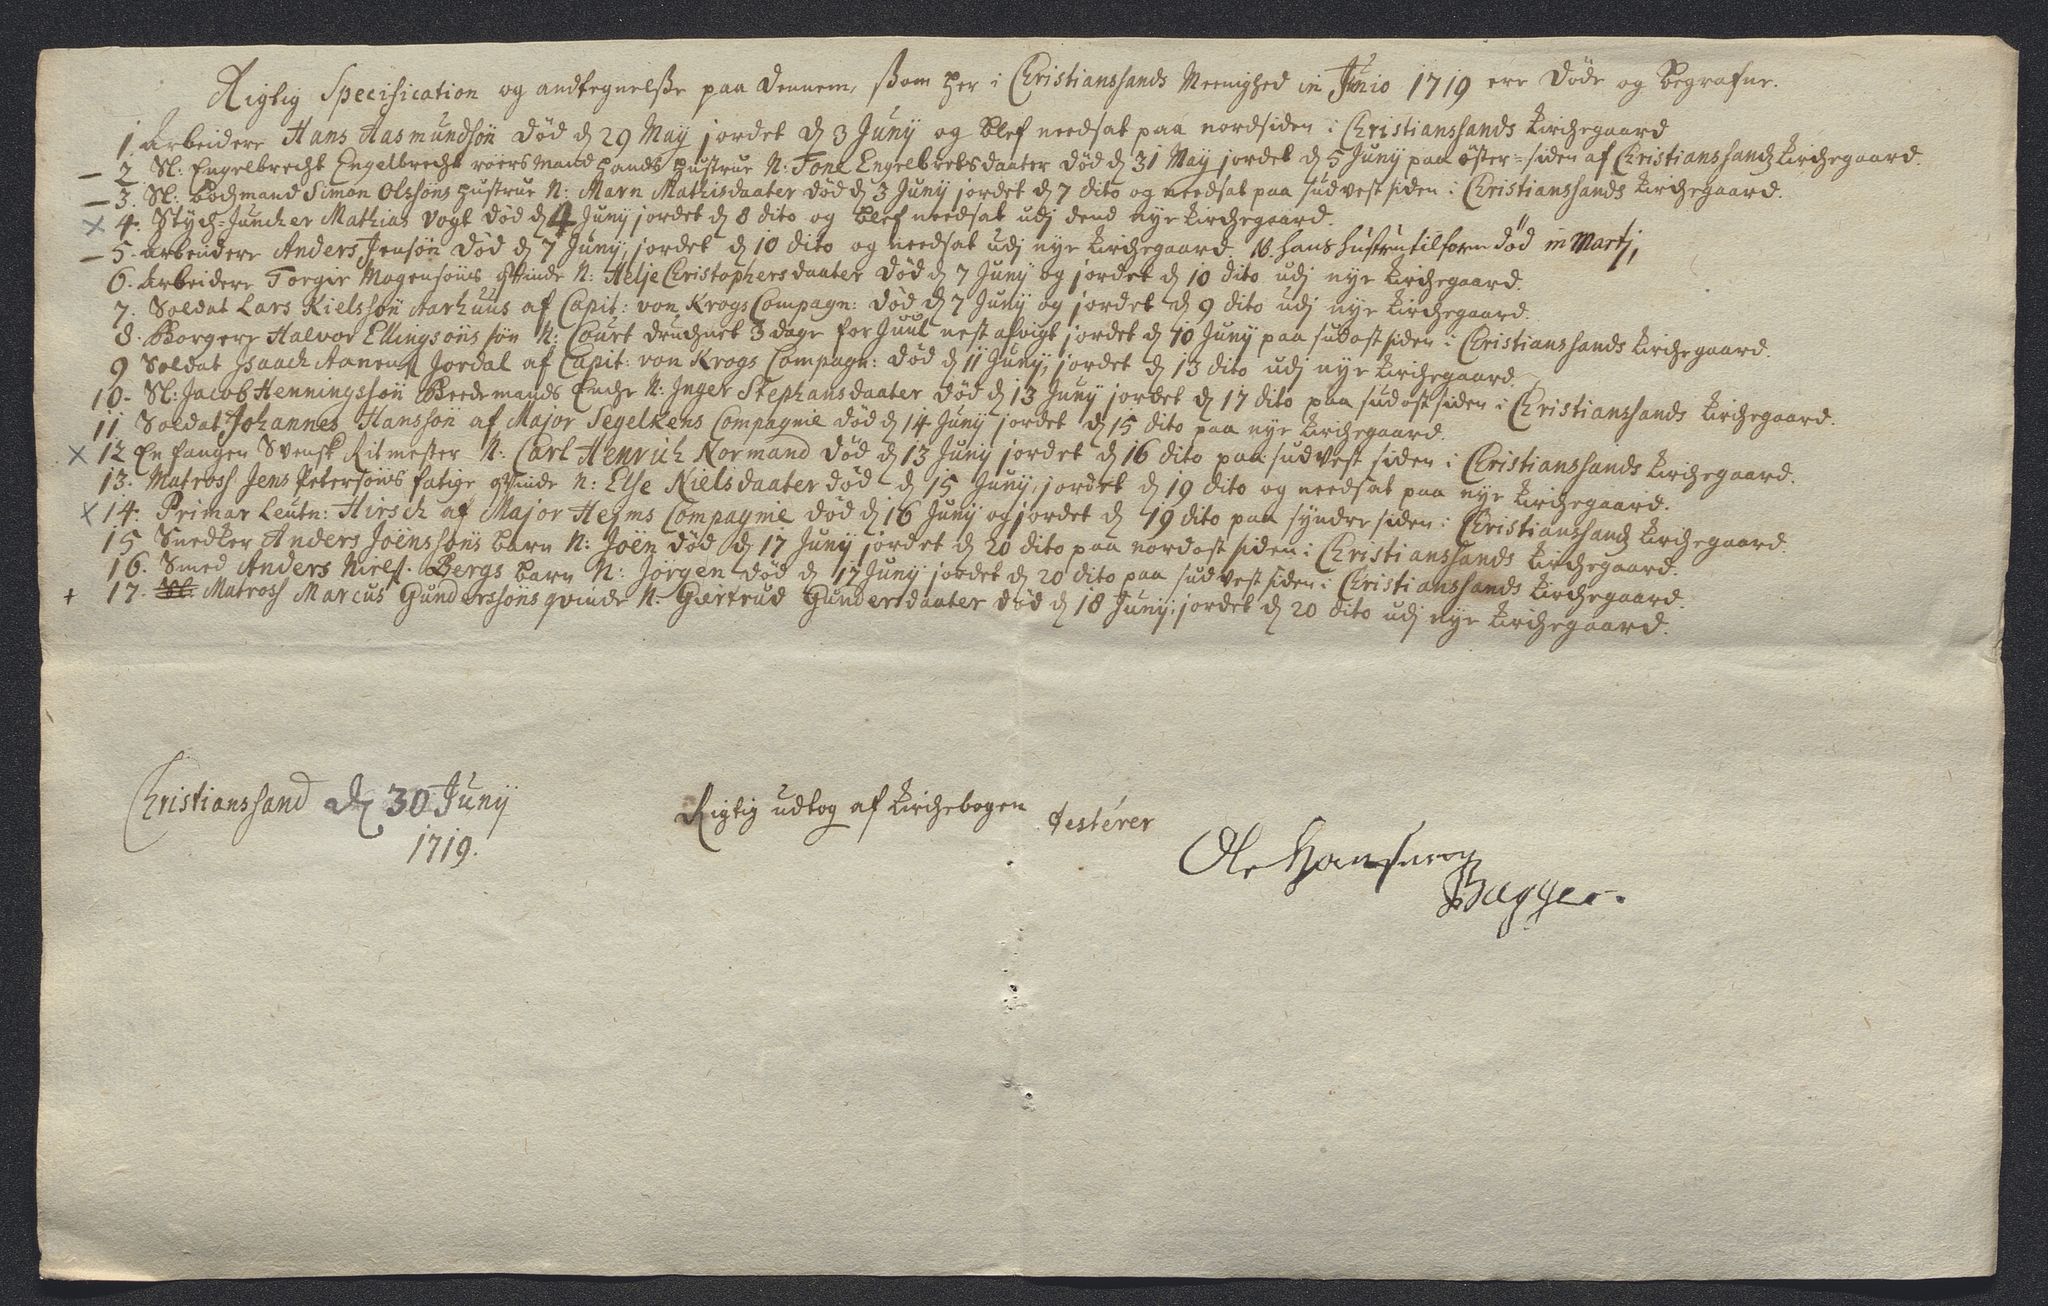 Rigtig Specification og andtegnelsse paa dennem, ssom her i Christianssands Meenighed in Junio 1719 ere døde og begrafne.
1 Arbeidere Hans Aasmundsøn død d 29 May jordet d 3 Junÿ og blef needsat paa nordsiden i Christianssands Kirchegaard
2 Sl: Engelbrecht Engelbrecht roers Mand hands hustrue N: Tone Engelbretsdaater død d 31 May jordet d 5 Junÿ paa øster-siden af Christianssands Kirchegaard.
3. Sl: Bodzmand Simon Olssøns hustrue N: Marn Mathisdaater død d 3 Junÿ jordet d 7 dito og needsat paa sudvest siden i Christianssands Kirchegaard.
x 4. Stÿch-Juncker Mathias Vogt død d 4 Junÿ jordet d 8 dito og blef needsat udj dend nye Kirchegaard.
5. Arbeidere Anders Jensøn død d 7 Junÿ jordet d 10 dito og needsat udj nye Kirchegaard. NB. hans hustru tilforn død in Martj,
6. Arbeidere Torger Mogensøns qvinde N: Aelje Christophersdaater død d 7 Junÿ og jordet d 10 dito udj nye Kirchegaard.
7. Soldat Lars Nielssøn Aarhuus af Capit: von Krogs Compagn: død d 7 Junÿ og jordet d 9 dito udj nye Kirchegaard.
8. Borgere Halvor Ellingsøns søn N: Court druchnet 3 dage for Juul nest afvigt jordet d 10 Junÿ paa sudost siden i Christianssands Kirchegaard.
9 Soldat Jsaach Aanens Jordal af Capit: von Krogs Compagn: død d 11 Junÿ, jordet d 13 dito udj nye Kirchegaard.
10. Sl: Jacob Henningssøn Beedemands Enche N: Jnger Stephansdaater død d 13 Junÿ jordet d 17 dito paa sudost siden i Christianssands Kirchegaard.
11 Soldat Johannes Hanssøn af Major Segelkens Compagnie død d 14 Junÿ jordet d 15 dito paa nye Kirchegaard.
x 12 En fangen Svensk Ritmester N: Carl Henrich Normand død d 13 Junÿ jordet d 16 dito paa sudvest siden i Christianssands Kirchegaard.
13. Matross Jens Petersøns fatige qvinde N: Else Nielsdaater død d 15 Junÿ, jordet d 19 dito og needsat paa nye Kirchegaard.
x 14. Primar Leutn: Hirsch af Major Heyms Compagnie død d 16 Junÿ og jordet d 19 dito paa syndre siden i Christianssands Kirchegaard.
15 Snedker Anders Joenssøns barn N: Joen død d 17 Junÿ jordet d 20 dito paa nordost siden i Christianssands Kirchegaard.
16. Smed Anders Niels. Bergs barn N: Jørgen død d 17 Junÿ jordet d 20 dito paa sudvest siden i Christianssands Kirchegaard.
+ 17. Matross Marcus Gunderssøns qvinde N: Giertrud Gundersdaater død d 18 Junÿ; jordet d 20 dito udj nye Kirchegaard.
Christianssand d 30 Junÿ
1719.
Rigtig udtog af Kirchebogen testérer
Ole Hansen
Bagger.